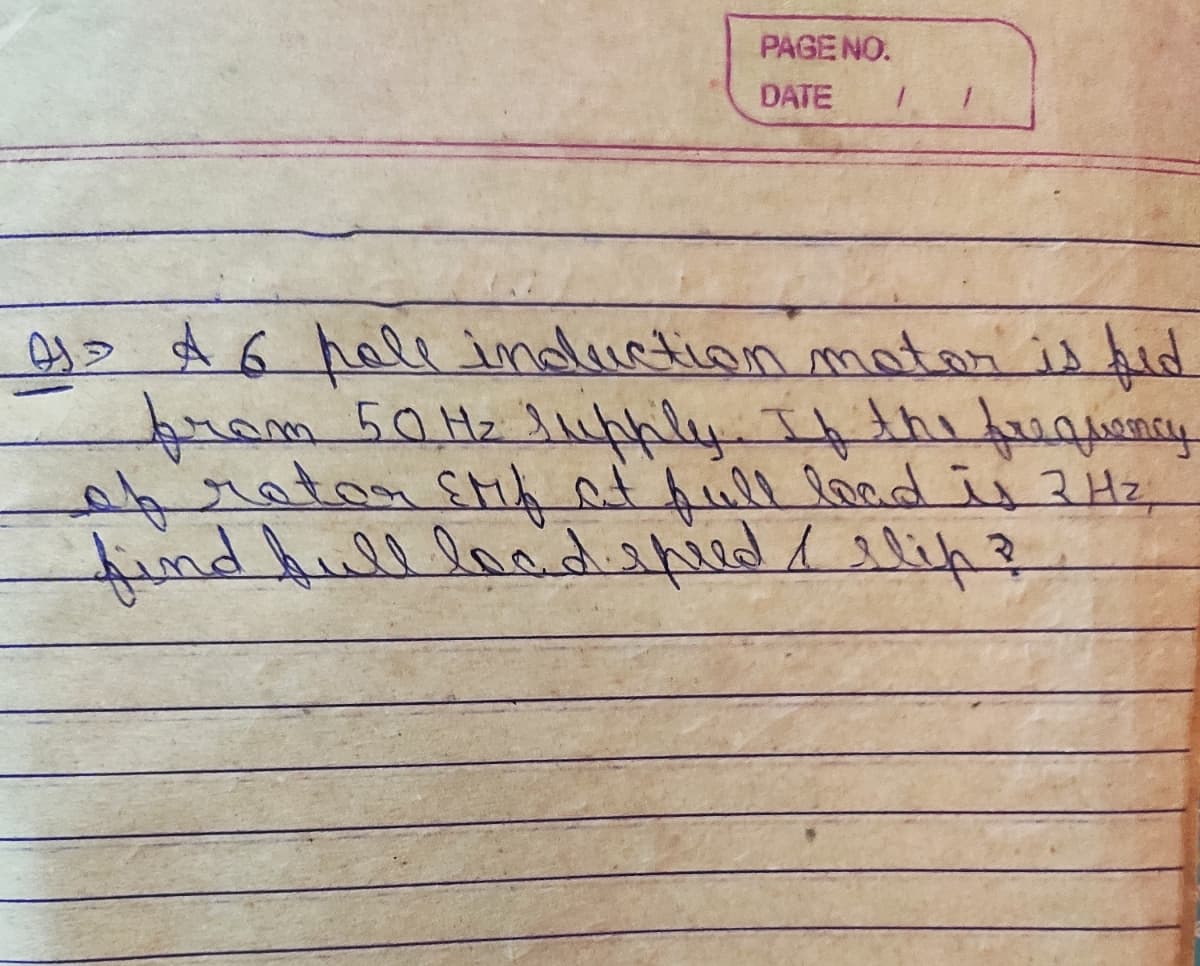 PAGE NO.
DATE / /
Q) => A 6 pole induction motor is fed
from 50 Hz supply. If the frequency
of rotor EMf at full load is 2 Hz,
find full load speed & slip?